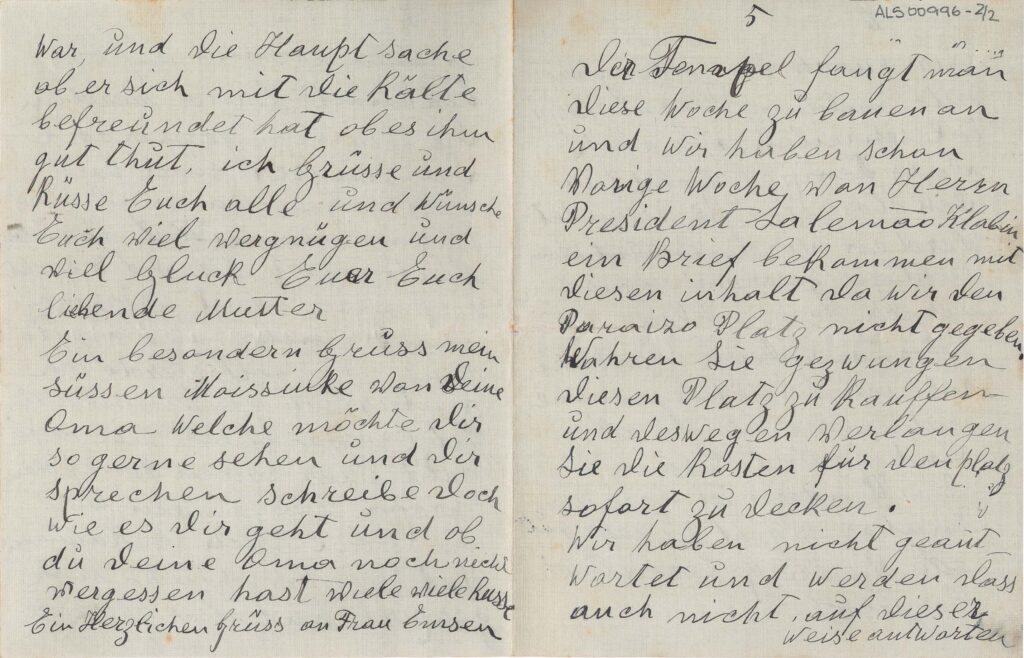 war, und die Haupt sache
ob er sich mit die Kälte
befreundet hat ob es ihm
gut thut, ich Grüsse und
Küsse Euch alle und Wünsche
Euch viel vergnügen und
viel Gluck Euer Euch
liebende Mutter
Ein besondern Grüss mein
süssen Moissinke von Deine
Oma Welche möchte Dir
so gerne sehen und Dir
sprechen schreibe Doch
wie es Dir geht und ob
du Deine Oma noch nicht
vergessen hast viele viele küsse
Ein Herzlichen Grüss an Frau
ALS00996-2/2
5
Der Tempel fängt män
diese Woche zu bauen an
und wir haben schon
Vorige Woche von Herrn
President Salemão Klabin
ein Brief bekommen mit
diesen inhalt Da wir den
Paraizo Platz nicht gegeben
Wahren Sie gezwungen
diesen Platz zu Kauffen
und deswegen verlangen
Sie die Kosten für den platz
sofort zu decken.
Wir haben nicht geant-
wortet und werden Dass
auch nicht, auf dieser
weise antworten